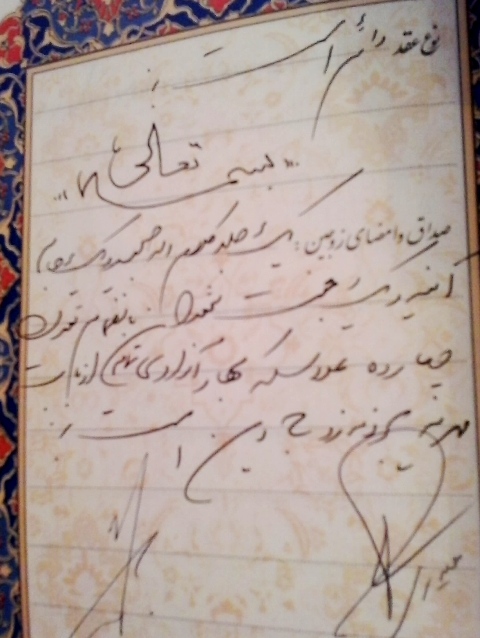 نوع عقد دائم است
بسمه تعالی
صداق و امضای زوجین : یک جلد کلام الله مجید و یک جام
آئینه و یک جفت شمعدان بانضمام تعداد
چهارده عدد سکه بهار آزادی تمام از بابت
مهریه بذمه زوج دین است